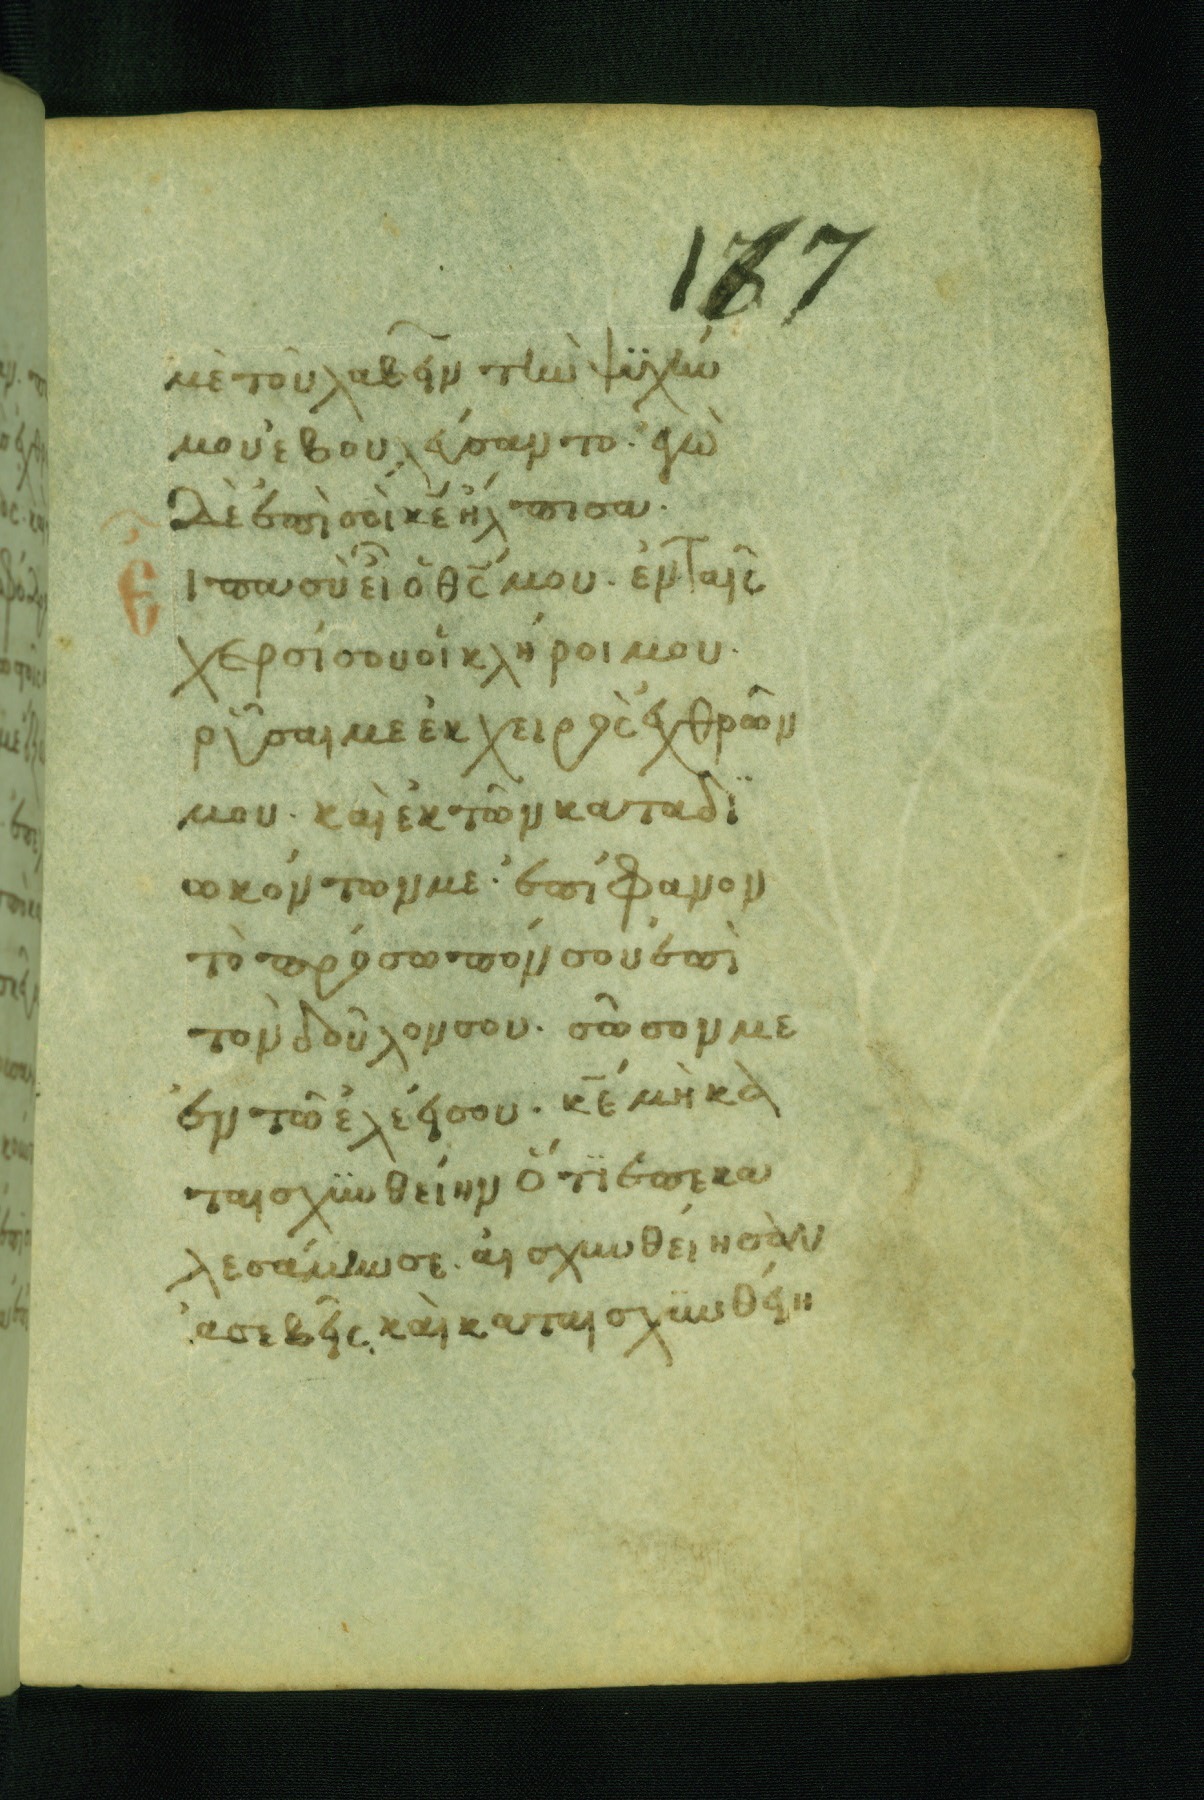 167
μὲ τοῦ λαβεῖν τὴν ψϋχήν
μου ἐβουλεύσαντο. ἐγὼ
δὲ ἐπὶ σοὶ κ̅ε̅ ἤλπισα.
Εἶπα σὺ εἶ ὁ θ̅ς̅ μου. ἐν ταῖς
χερσί σου οἱ κλῆροι μου.
ρῦσαι με ἐκ χειρὸς ἐχθρῶν
μου. καὶ ἐκ τῶν καταδϊ
ωκόντων με. ἐπίφανον
τὸ πρόσωπόν σου ἐπὶ
τὸν δοῦλον σου. σῶσον με
ἐν τῶ ἐλέει σου. κ̅ε̅ μὴ κα
ταισχϋνθείην ὅτϊ ἐπεκα
λεσάμην σε. αἰσχυνθείησαν
ἀσεβεῖς. καὶ καταισχϋνθείη